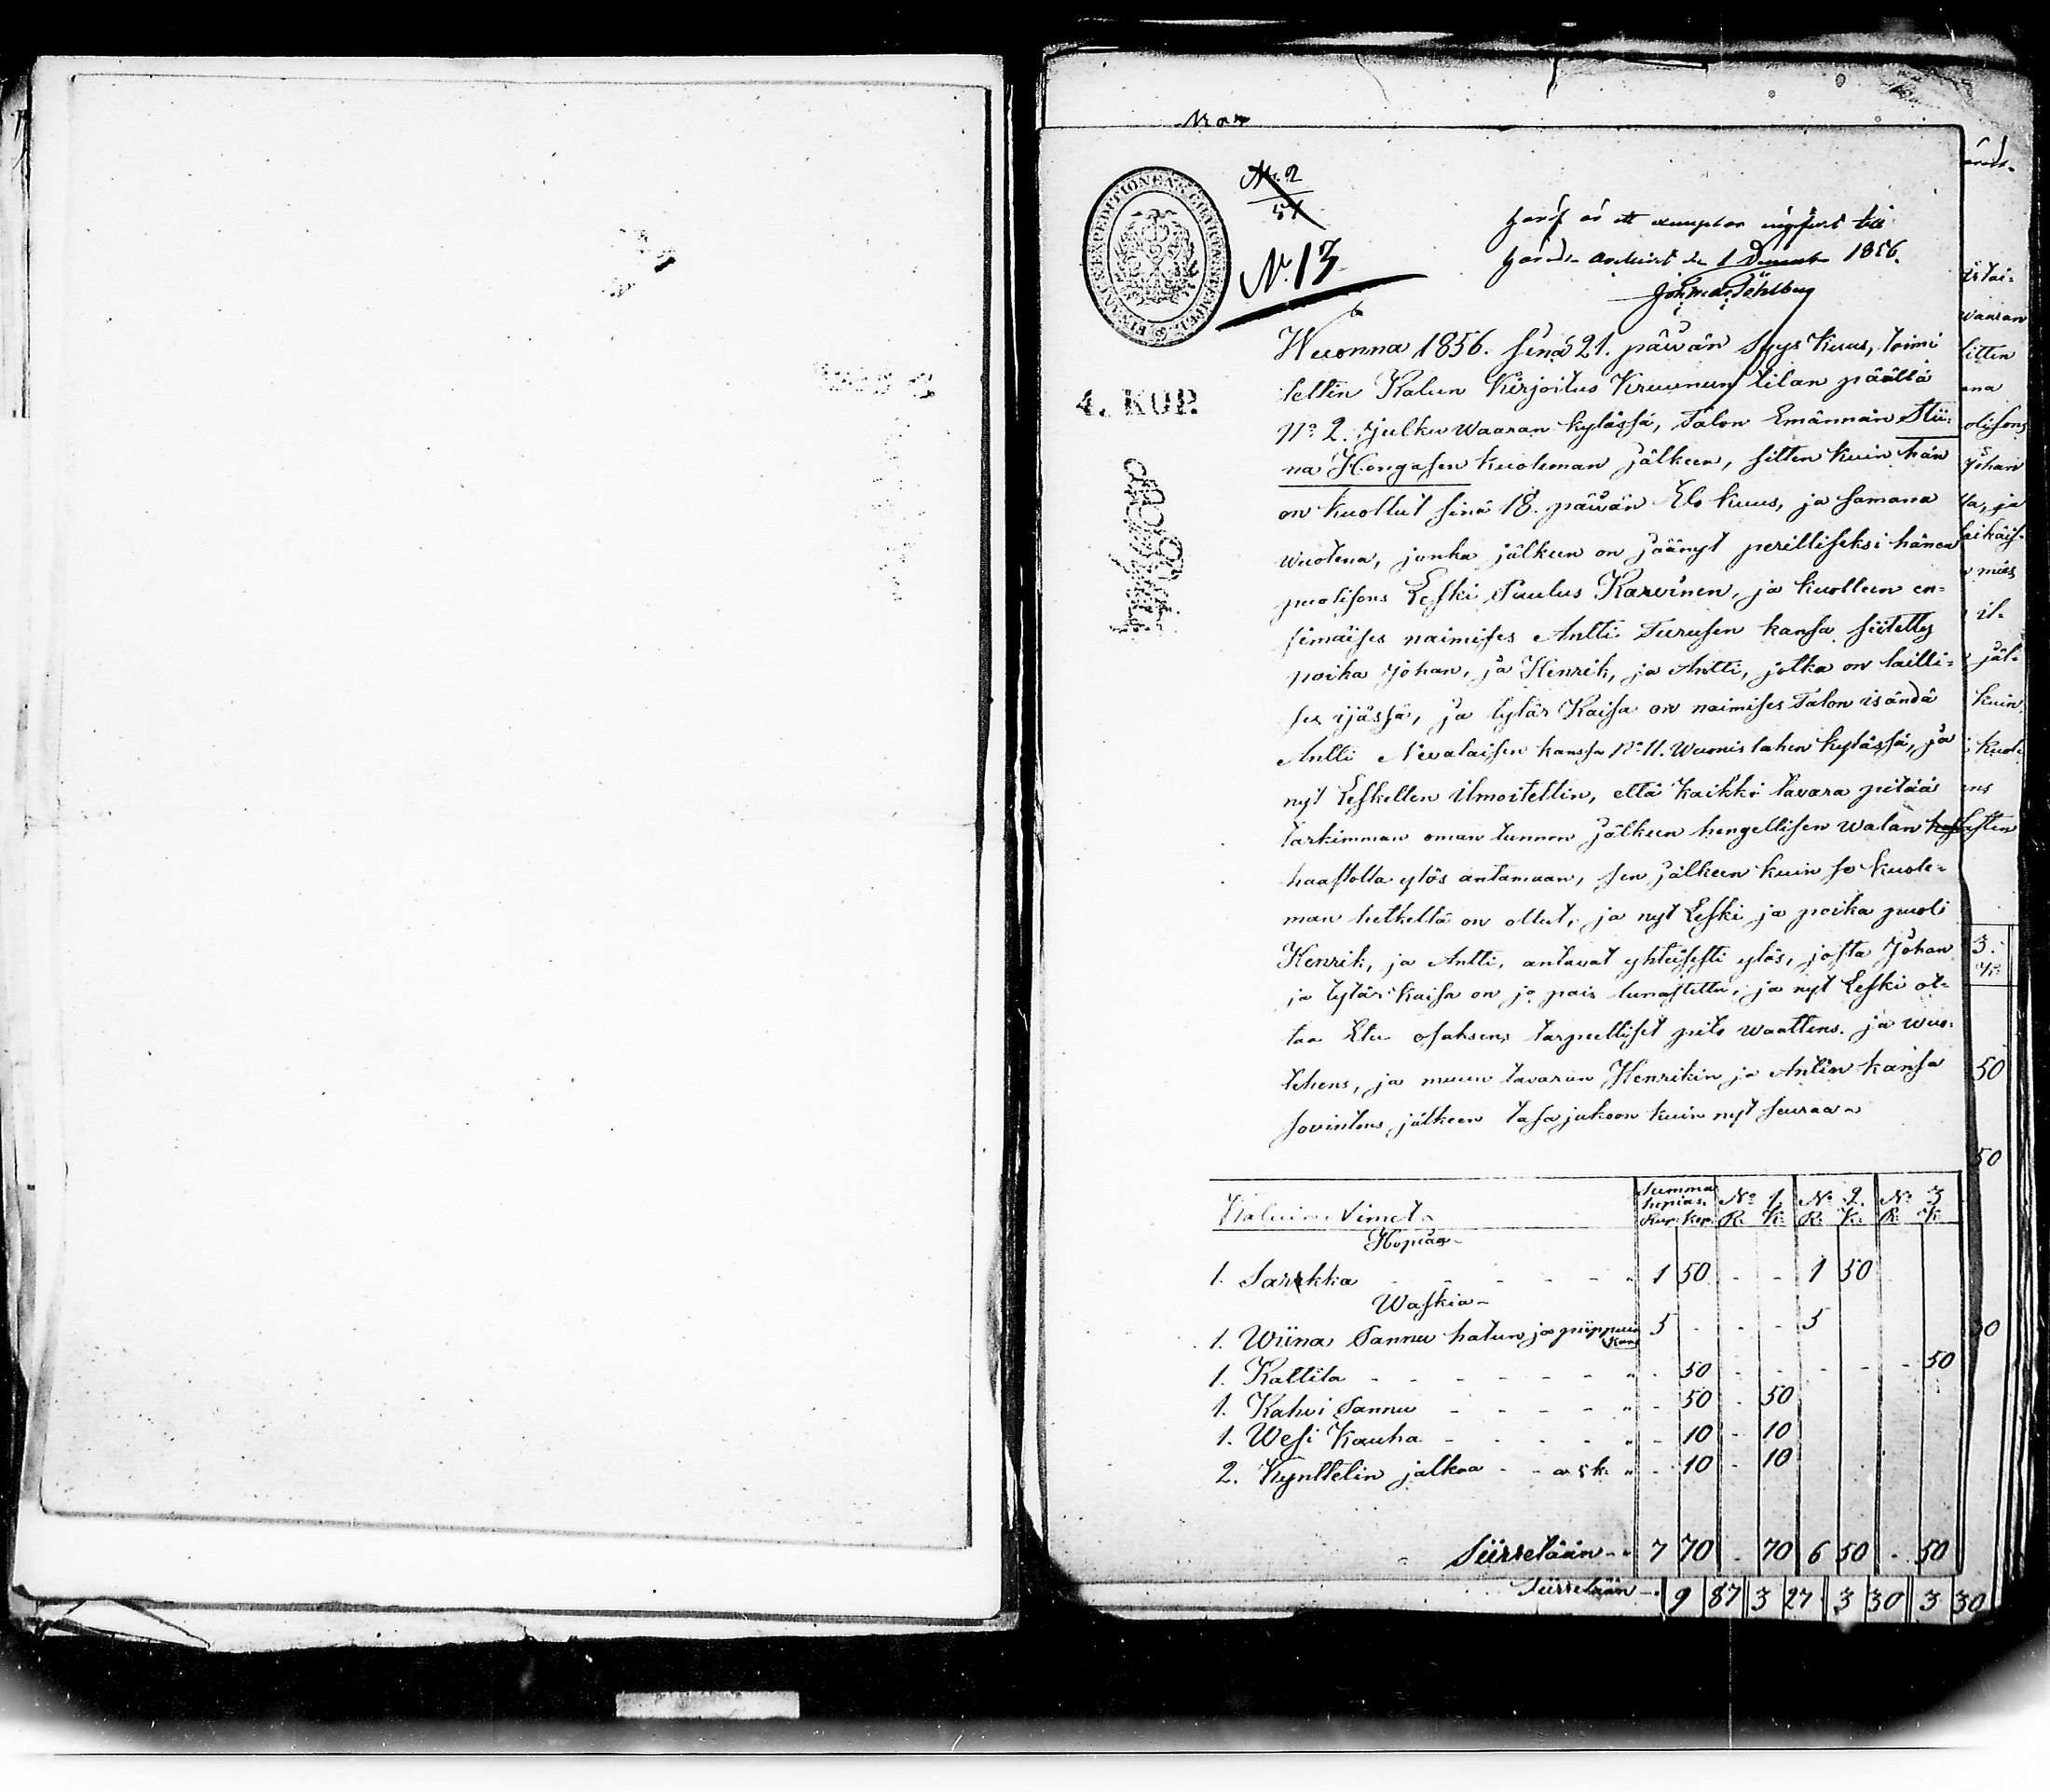 N:o 2
51
N:o 13
häraf är ett exemplar ingifvet till
härads arckivet den 1 December 1856.
FINANCE EXPEDITIONENS CHARTÆ STEMPEL
4. KOP.
Wuonna 1856. sinä 21. päivän Syys kuus, toimi
tettin Kalun Kirjoitus Kruunun tilan päällä
No 2. Julku waaran kylässä, Talon Emännän Stii-
na Hongasen kuoleman jälkeen, sitten kuin hän
on kuollut sinä 18. päivän Elo kuus, ja samana
wuotena, jonka jälkeen on jäänyt perilliseksi hänen
puolisons Leski Paulus Karvinen, ja kuolleen en-
simäises naimises Antti Turusen kansa siitetty
poika Johan, ja Henrik, ja Antti, jotka on lailli-
ses ijässä, ja tytär Kaisa on naimises Talon isändä
Antti Nevalaisen kanssa No 11. Wuonis lahen kylässä, ja
nyt Leskellen ilmoitettin, että kaikki tavara pitää
tarkimman oman tunnon jälkeen hengellisen walan
haastolla ylös antamaan, sen jälkeen kuin se kuole-
man hetkellä on ollut, ja nyt Leski ja poika puoli
Henrik, ja Antti, antavat yhteisesti ylös, josta Johan
ja tytär Kaisa on jo pois lunastettu, ja nyt Leski ot-
taa Etu osaksens tarpeelliset pito waattens. ja wuo-
tehens, ja muun tavaran Henrikin ja Antin kansa
sovintons jälkeen tasa jakoon kuin nyt seuraa
Kaluin Nimet Summa hopias. No 1. No 2. No 3
Rup: Kop R: K: R: K: R: K:
Hopiaa
1. Sarkka 1 50 - - 1 50
Waskia
1. Wiina Pannu hatun ja piippuin kans 5 - - - 5
1. Kattila - 50 - - - - - 50
1. Kahvi Pannu - 50 - 50
1. Wesi Kauha - 10 - 10
2. Kynttelin jalkaa a 5 k. - 10 - 10
Siirretään 7 70 - 70 6 50 - 50
Siirretään 9 87 3 27 3 30 3 30